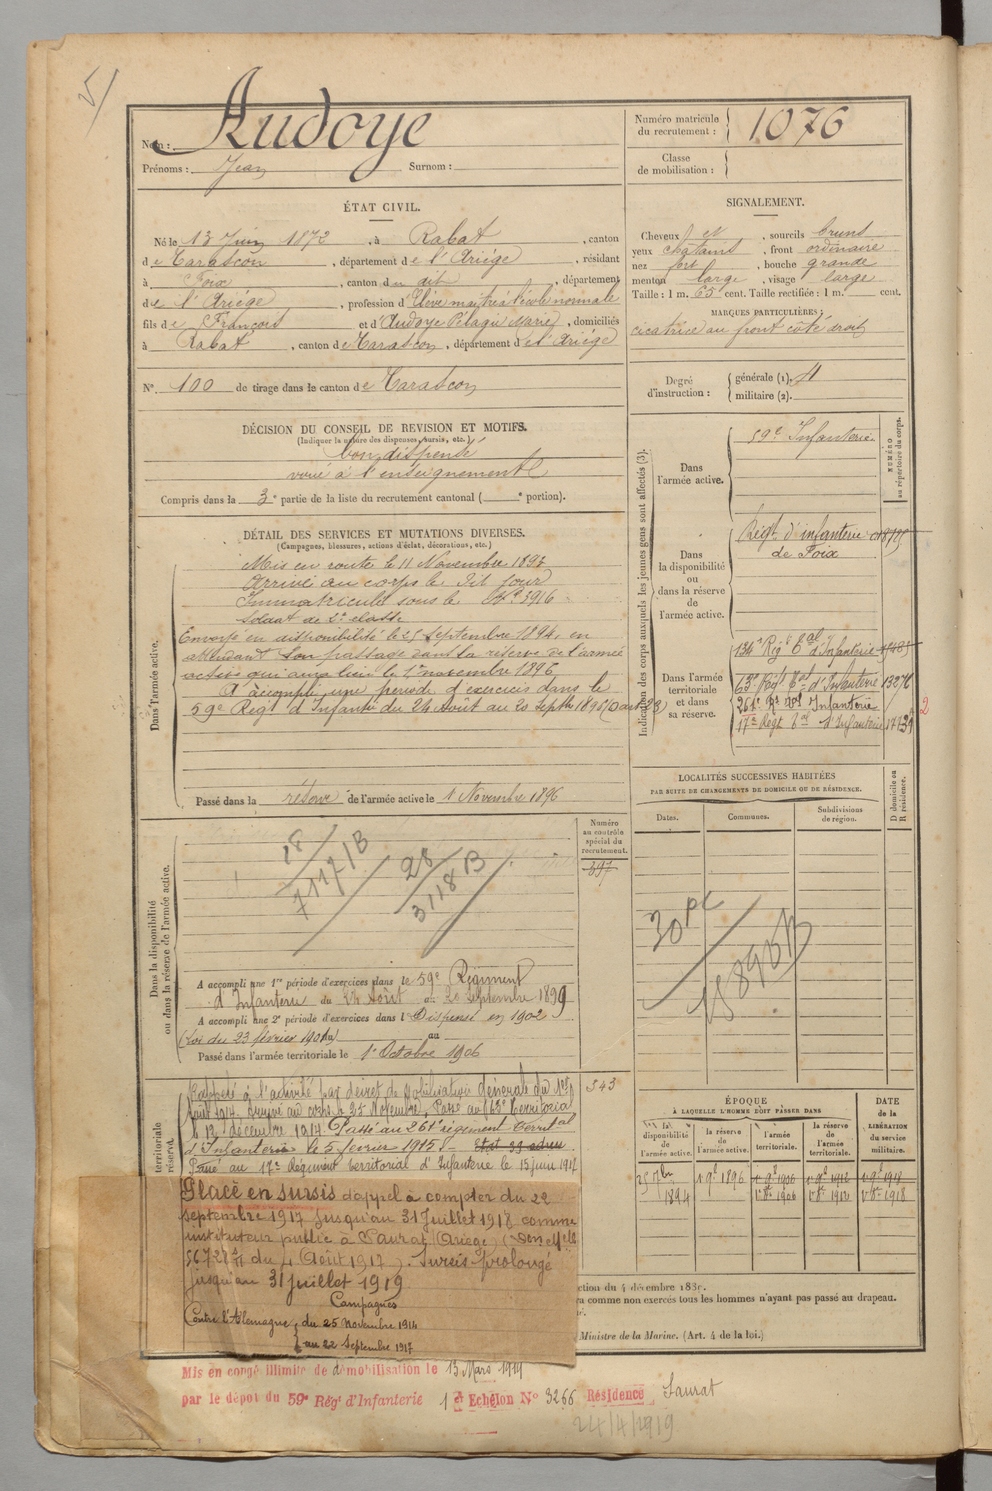 5/
Nom : Audoye
Prénoms : Jean Surnom :
Numéro matricule du recrutement : 1076
Classe de mobilisation :
ÉTAT CIVIL.
Né le 13 Juin 1872, à Rabat, canton
de Tarascon, département de l'Ariège, résidant
à Foix, canton du dit, département
de l'Ariège, profession d'Elève maître à l'école normale
fils de François et d'Audoye Pélagie Marie, domiciliés
à Rabat, canton de Tarascon, département de l'Ariège
N° 100 de tirage dans le canton de Tarascon
SIGNALEMENT.
Cheveux et, sourcils bruns
yeux chatains, front ordinaire
nez fort, bouche grande
menton large, visage large
Taille : 1 m. 65 cent. Taille rectifiée : 1 m. cent.
MARQUES PARTICULIÈRES :
cicatrice au front côté droit
Degré d'instruction : générale (1).
militaire (2).
DÉCISION DU CONSEIL DE REVISION ET MOTIFS.
(Indiquer la nature des dispenses, sursis, etc.)
bon, dispensé
voué à l'enseignement
Compris dans la 3e partie de la liste du recrutement cantonal ( e portion).
DÉTAIL DES SERVICES ET MUTATIONS DIVERSES.
(Campagnes, blessures, actions d'éclat, décorations, etc.)
Dans l'armée active.
Mis en route le 11 Novembre 1893
Arrivé au corps le dit jour
Immatriculé sous le N° 3916
soldat de 2e classe
Envoyé en disponibilité le 25 septembre 1894, en
attendant son passage dans la réserve de l'armée
active qui aura lieu le 1er novembre 1896
A accompli une période d'exercices dans le
59e Régt d'Infantie du 24 Août au 20 Septbre 1896
Passé dans la réserve de l'armée active le 1 Novembre 1896
Indication des corps auxquels les jeunes gens sont affectés (3).
NUMÉRO au répertoire du corps.
Dans l'armée active.
59e Infanterie
Dans la disponibilité ou dans la réserve de l'armée active.
Régt d'infanterie
de Foix
Dans l'armée territoriale et dans sa réserve.
134e Régt Eal d'Infanterie
63e Régt Eal d'Infanterie 13276
261e Rt Eal d'Infanterie
17e Régt Eal d'Infanterie
2
LOCALITÉS SUCCESSIVES HABITÉES
PAR SUITE DE CHANGEMENTS DE DOMICILE OU DE RÉSIDENCE.
Dates. Communes. Subdivisions de région. D domicile ou R résidence.
30 PC
15890B
Dans la disponibilité ou dans la réserve de l'armée active.
Numéro au contrôle spécial du recrutement.
397
28
7117/B
28
3118 B
A accompli une 1re période d'exercices dans le 59e Régiment
d'Infanterie du 24 Août au 20 septembre 1899
A accompli une 2e période d'exercices dans l Dispensé en 1902
(Loi du 23 février 1901) au
Passé dans l'armée territoriale le 1er Octobre 1906
territoriale
réserve.
543
Rappelé à l'activité par décret de Mobilisation Générale du 1er
Août 1914. Arrivé au corps le 25 Novembre. Passé au 63e Territorial
le 12 décembre 1914. Passé au 261e régiment territal
d'Infanterie le 5 février 1915
Passé au 17e Régiment territorial d'Infanterie le 15 juin 1917
Placé en sursis d'appel à compter du 22
septembre 1917 jusqu'au 31 Juillet 1918 comme
instituteur public à Saurat (Ariège)
56728 du 4 Août 1917). Sursis prolongé
jusqu'au 31 juillet 1919
Campagnes
Contre l'Allemagne, du 25 Novembre 1914
au 22 Septembre 1917
ÉPOQUE
À LAQUELLE L'HOMME DOIT PASSER DANS
la disponibilité de l'armée active. la réserve de l'armée active. l'armée territoriale. la réserve de l'armée territoriale.
DATE de la LIBÉRATION du service militaire.
25 7bre 1894 1 9b 1896 1 9b 1906 1 9b 1912 1 9b 1918
1 8b 1906 1 8b 1912 1 8b 1918
ction du 4 décembre 1889.
comme non exercés tous les hommes n'ayant pas passé au drapeau.
Ministre de la Marine. (Art. 4 de la loi.)
Mis en congé illimité de démobilisation le 13 Mars 1919
par le dépôt du 59e Rég' d'Infanterie 1er Echelon N° 3266 Résidence Saurat
24/4/1919